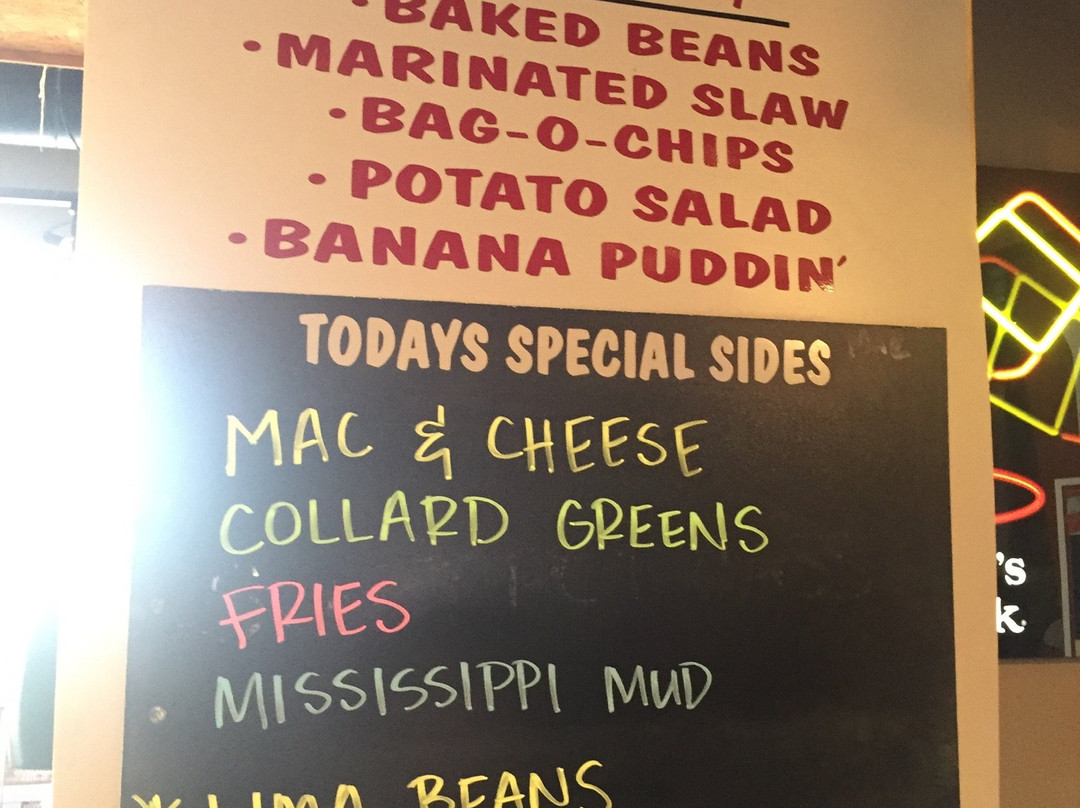 • BAKED BEANS
• MARINATED SLAW
• BAG-O-CHIPS
• POTATO SALAD
• BANANA PUDDIN'
TODAYS SPECIAL SIDES
MAC & CHEESE
COLLARD GREENS
FRIES
MISSISSIPPI MUD
LIMA BEANS
's
k.